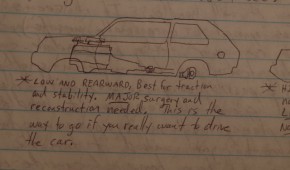 * LOW AND REARWARD, Best for traction
and stability. MAJOR surgery and
reconstruction needed. This is the
way to go if you really want to drive
the car.
* H